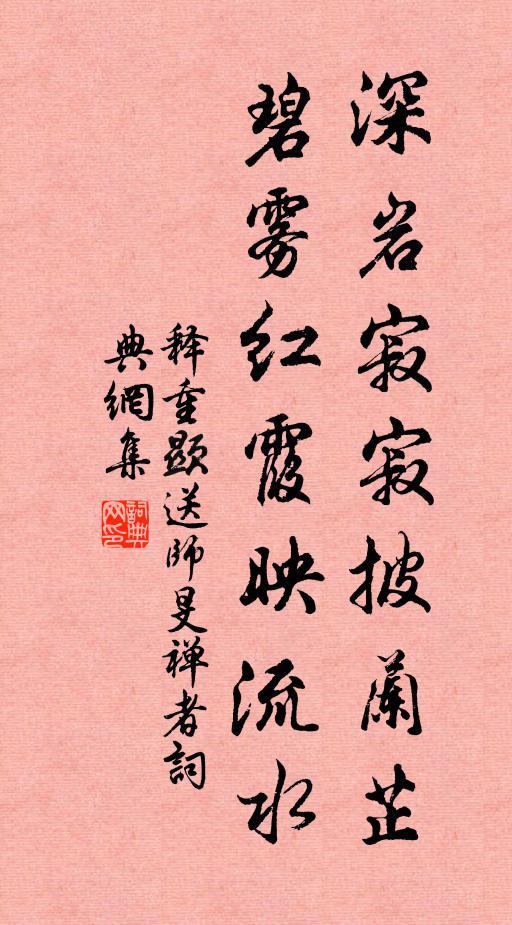 深岩寂寂披蘭芷
碧雾红霞映流水
释重顯送師旻禅者詞
典網集
詞典网印